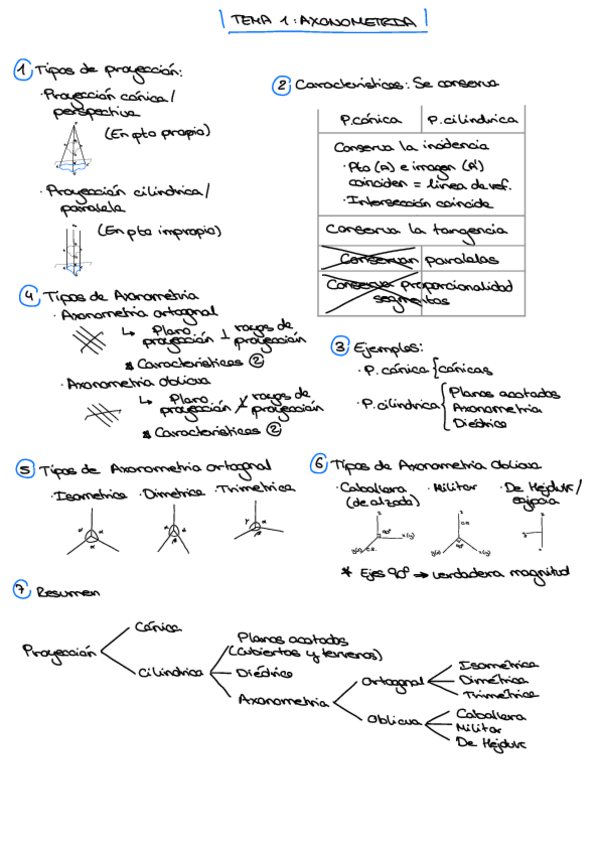 TEMA 1: AXONOMETRÍA
1 Tipos de proyección:
· Proyección cónica /
perspectiva
(En pto propio)
· Proyección cilíndrica /
paralela
(En pto impropio)
2 Características: Se conserva
P.cónica
P.cilíndrica
Conserva la incidencia
· Pto (A) e imagen (A')
coinciden = línea de ref.
· Intersección coincide
Conserva la tangencia
Conservan paralelas
Conserva proporcionalidad
segmentos
3 Ejemplos:
· P. cónica { cónicas
· P.cilíndrica
Planos acotados
Axonometría
Diédrico
4 Tipos de Axonometría
· Axonometría ortogonal
↳ Plano ⊥ rayos de
proyección proyección
* Características 2
· Axonometría oblicua
↳ Plano rayos de
proyección proyección
* Características 2
5 Tipos de Axonometría ortogonal
· Isométrica · Dimétrica · Trimétrica
6 Tipos de Axonometría Oblicua
· Caballera · Militar · De Hejduk /
(de alzado) egipcia
* Ejes 90° → verdadera magnitud
7 Resumen
Proyección
Cónica
Cilíndrica
Planos acotados
(Cubiertas y terrenos)
Diédrico
Axonometría
Ortogonal
Isométrica
Dimétrica
Trimétrica
Oblicua
Caballera
Militar
De Hejduk